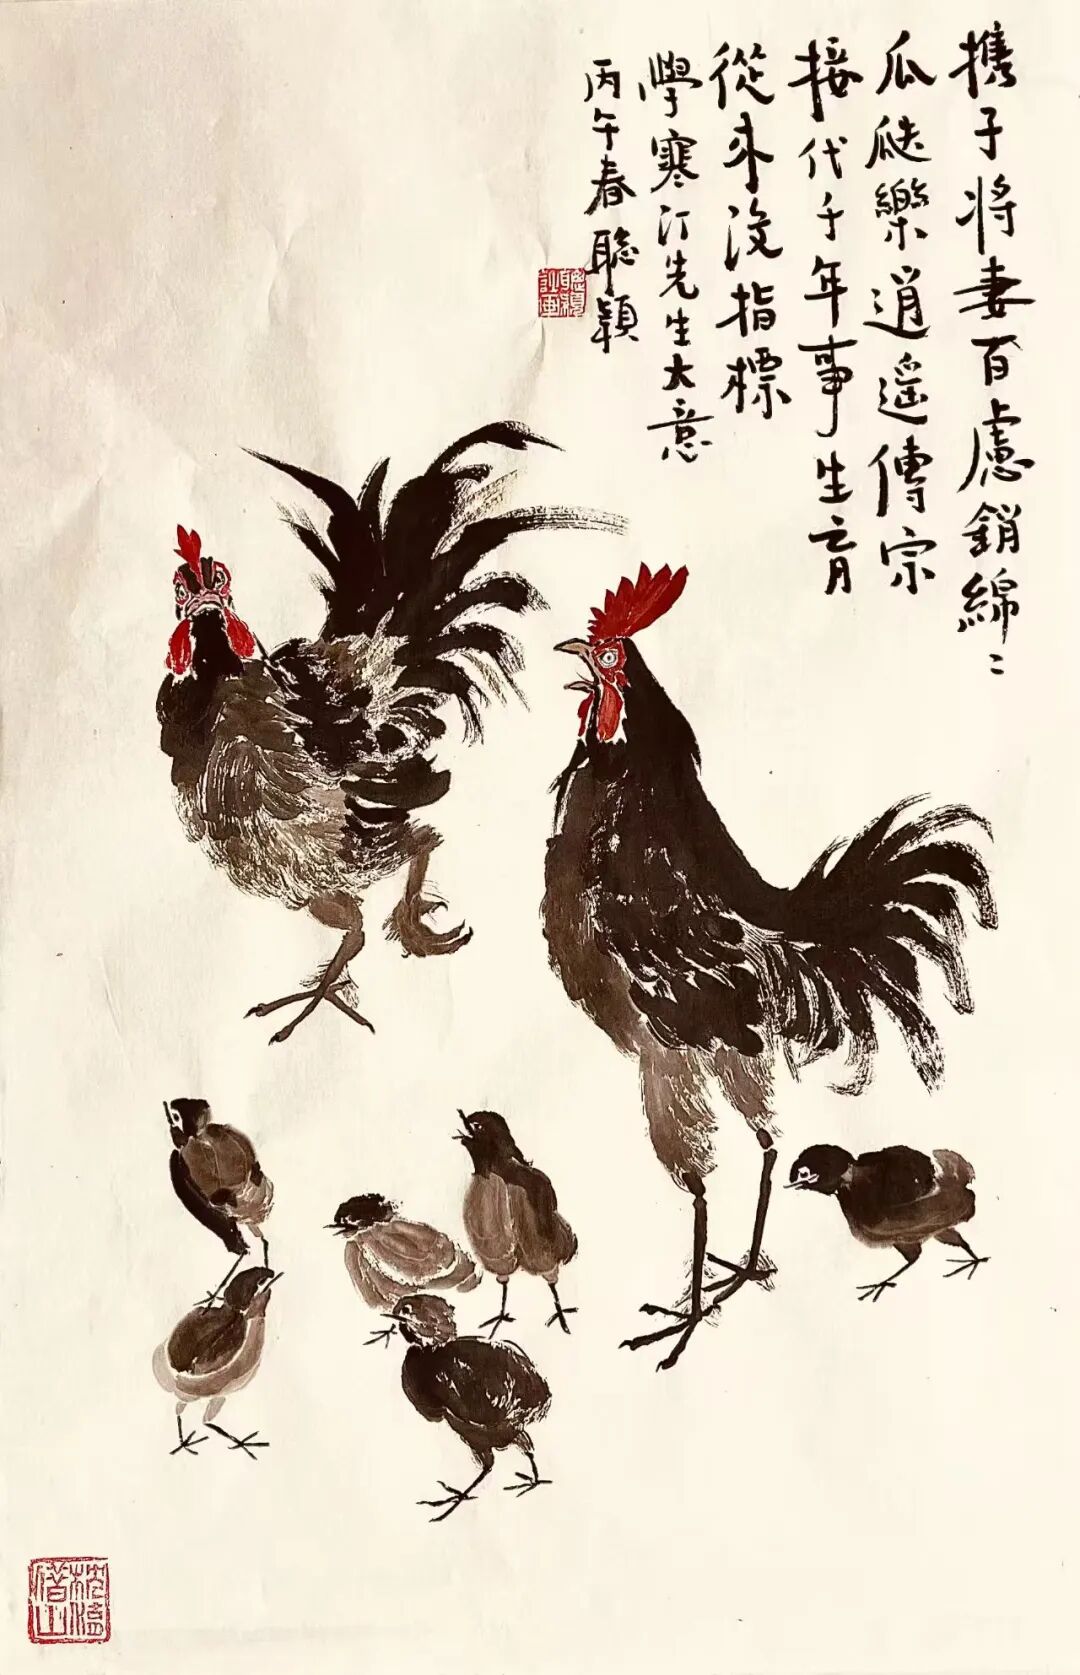 携子将妻百慮銷綿〻
瓜瓞樂逍遥傳宗
接代千年事生育
從来没指標
學寒汀先生大意
丙午春聪穎